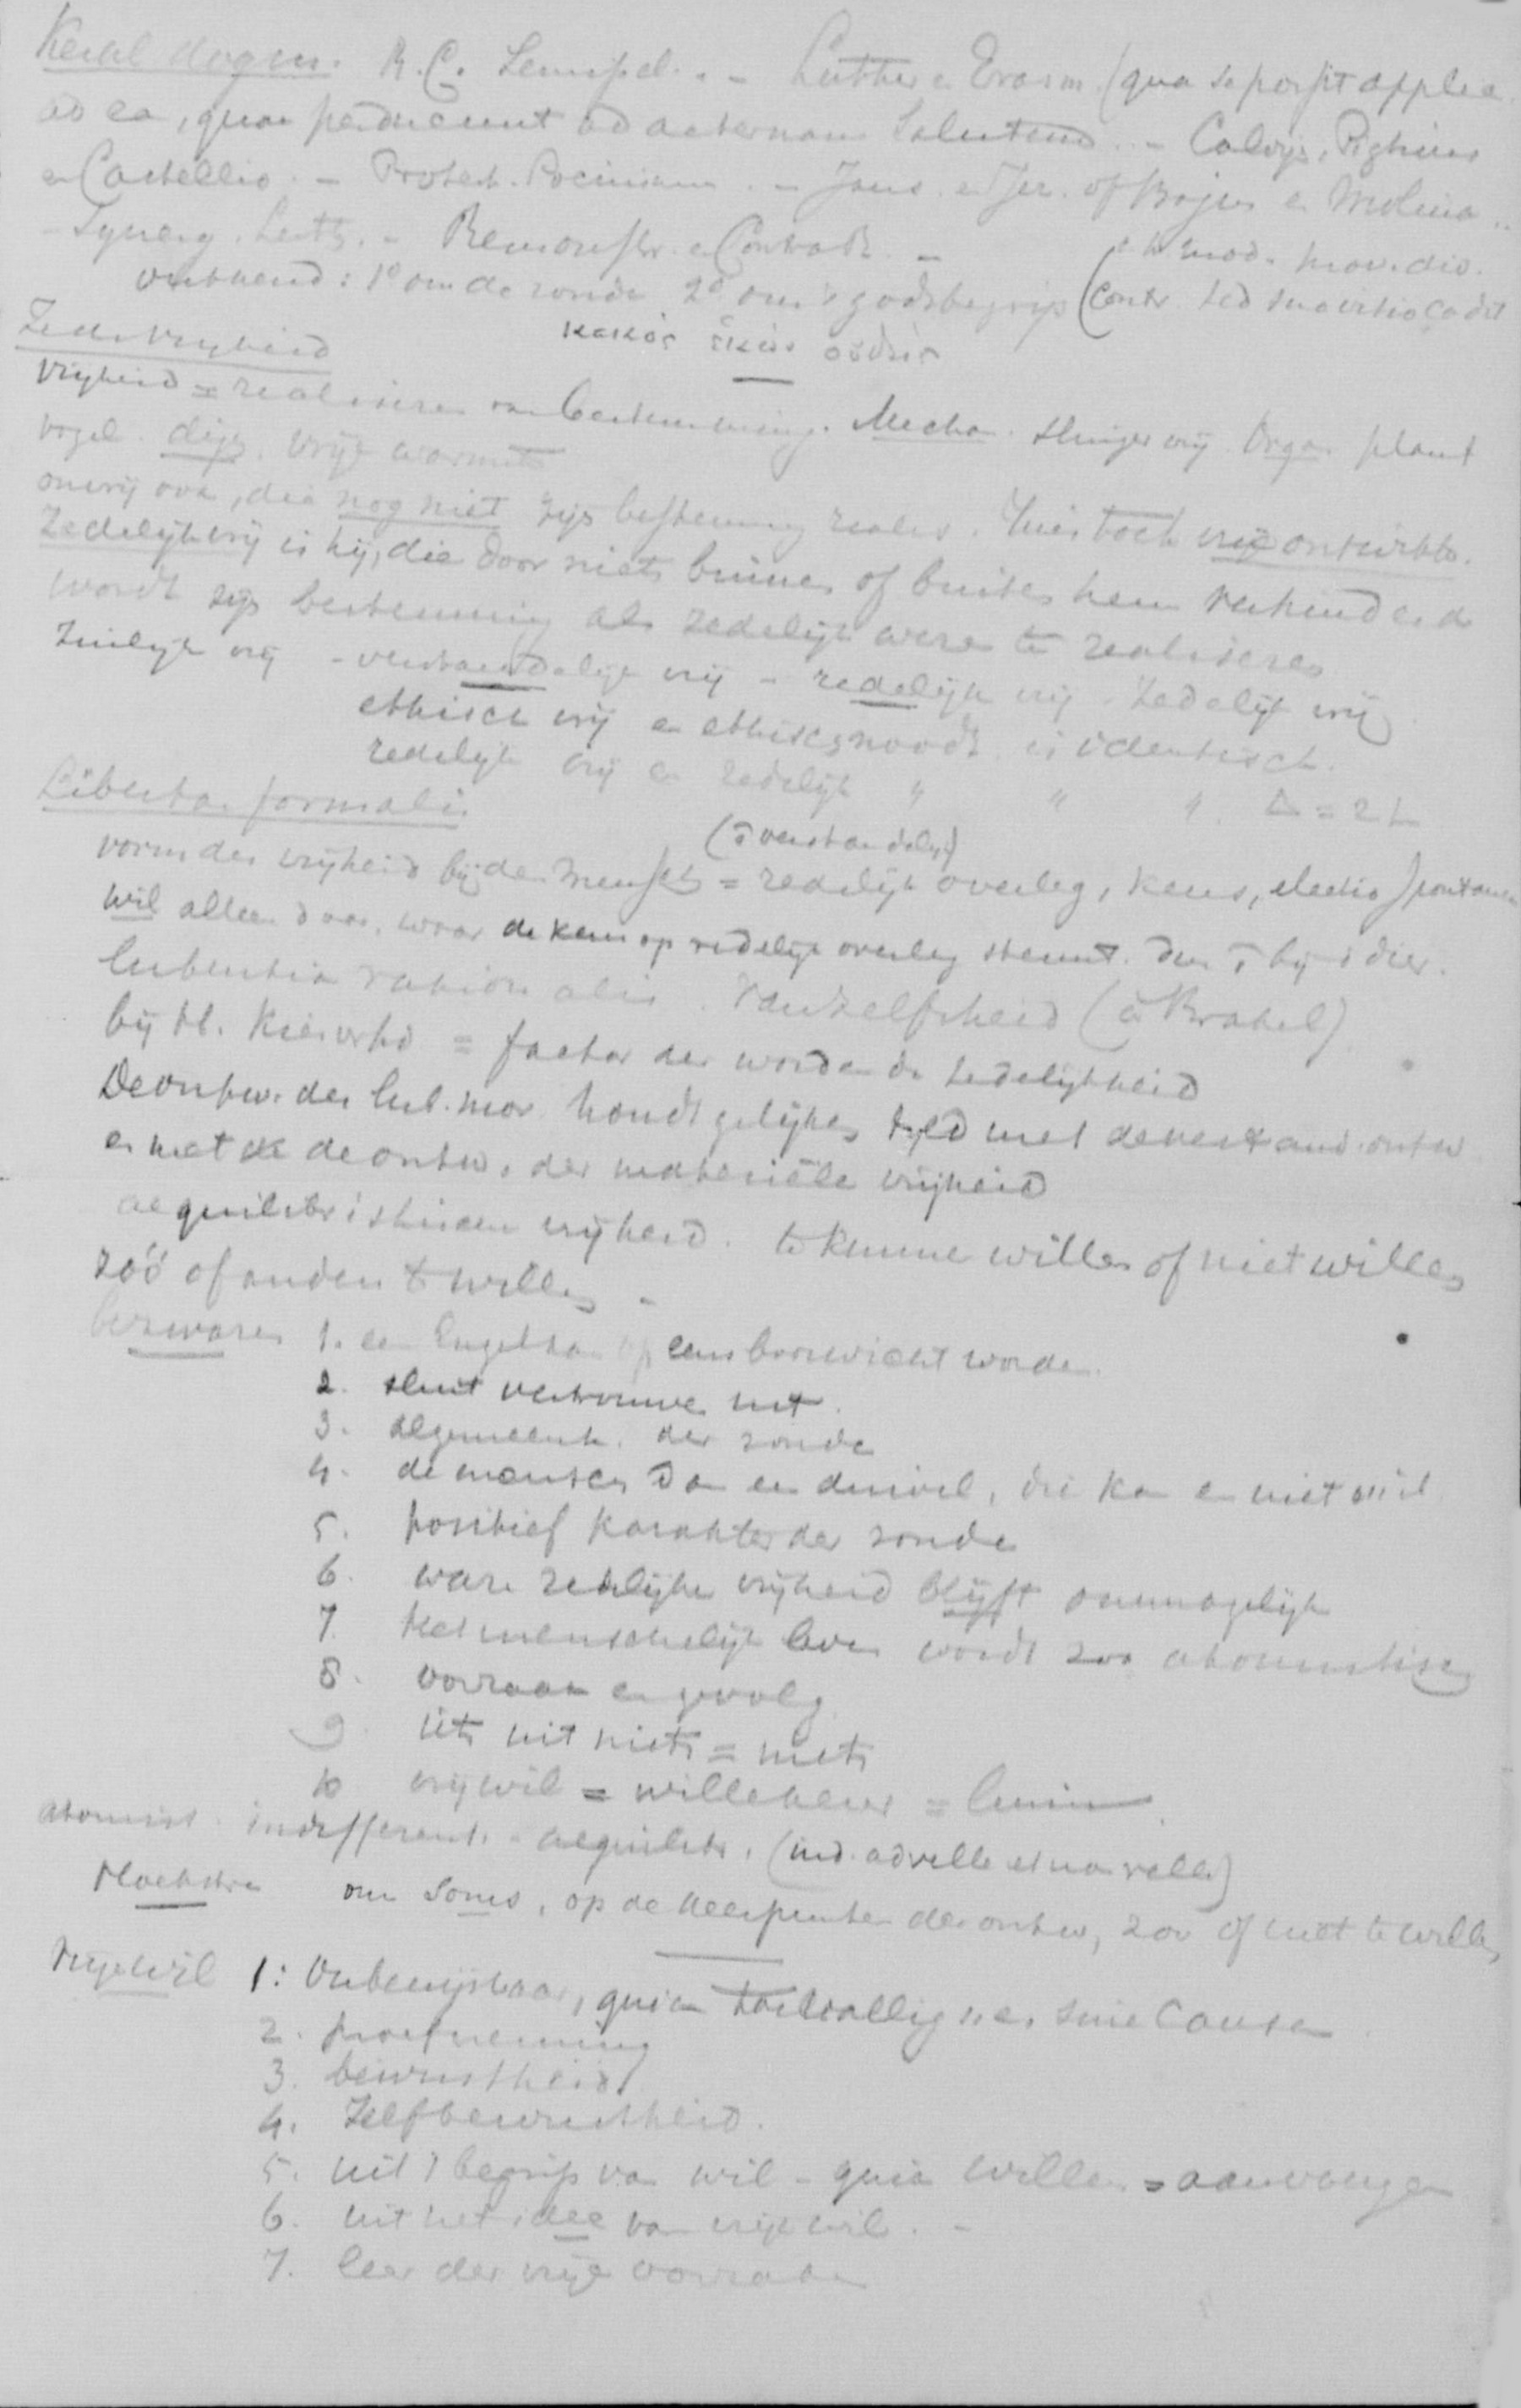 Kerkl dogm. R.C. Semipel. - Luther en Erasm. (qua se possit applic.
ad ea, quae perducunt ad aeternam salutem. - Calvijn, Pighius
en Castellio. - Protest. Socinianen. - Jans. en Jez. of Bajus en Molina
- Synerg. Luth. - Remonstr. en Contrar. - prov. div.
ontkend: 1° om de zonde 2° om 't godsbegrip (contr. sed suo vitio cadit
κακὸς ἑκὼν οὐδείς
Zedel. vrijheid
Vrijheid = realiseren van bestemming. Mecha. slinger vrij Orga. plant
vogel. vrije warmte
onvrij ook, die nog niet zijn bestemming realis. Hier toch vrije ontwikk.
Zedelijk vrij is hij, die door niets binnen of buiten hem verhinderd
wordt zijn bestemming als zedelijk wezen te realiseren
Zinlijk vrij - verstandelijk vrij - redelijk vrij - Zedelijk vrij
ethisch vrij en ethisch noodz. is identisch.
redelijk vrij en redelijk " " " Δ = 2 L
Libertas formalis
(o verstandelijk)
vorm der vrijheid bij den mensch = redelijk overleg, keus, electio spontanea
wil alleen daar, waar de keus op redelijk overleg steunt. dus o bij 't dier.
lubentia rationalis. Vanzelfsheid (à Brakel)
bij H. = factor der wordende zedelijkheid
De ontw. der lib. mor. houdt gelijken tred met de verstand. ontw.
en met de ontw. der materiëele vrijheid
aequilibristische vrijheid. te kunnen willen of niet willen
zóó of anders te willen -
bezwaren 1. een Engel kan op eens booswicht worden.
2. sluit vertrouwen uit.
3. algemeenh. der zonde
4. de mensch dan een duivel, die kan en niet wil
5. positief karakter der zonde
6. ware zedelijke vrijheid blijft onmogelijk
7. het menschelijk leven wordt zoo atomistisch
8. oorzaak en gevolg
9. iets uit niets = niets
10 vrij wil = willekeur = luim
atomist. indifferent. aequilibr. (ind. ad velle et non velle)
Hoekstra om soms, op de keerpunten der ontw, zoo of niet te willen
Vrije wil 1: Onbewijsbaar, quia toevallig n.e. sine causa
2. proefneming
3. bewustheid
4. Zelfbewustheid.
5. uit 't begrip van wil - quia willen = aanvangen
6. uit het idee van vrije wil. -
7. leer der vrije oorzaken